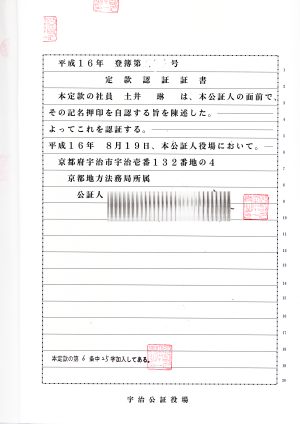 平成16年 登簿第 号
定款認証証書
本定款の社員 土井 琳 は、本公証人の面前で、
その記名押印を自認する旨を陳述した。
よってこれを認証する。
平成16年 8月19日、本公証人役場において。
京都府宇治市宇治壱番132番地の4
京都地方法務局所属
公証人
本定款の第6条中25字加入してある。
宇治公証役場